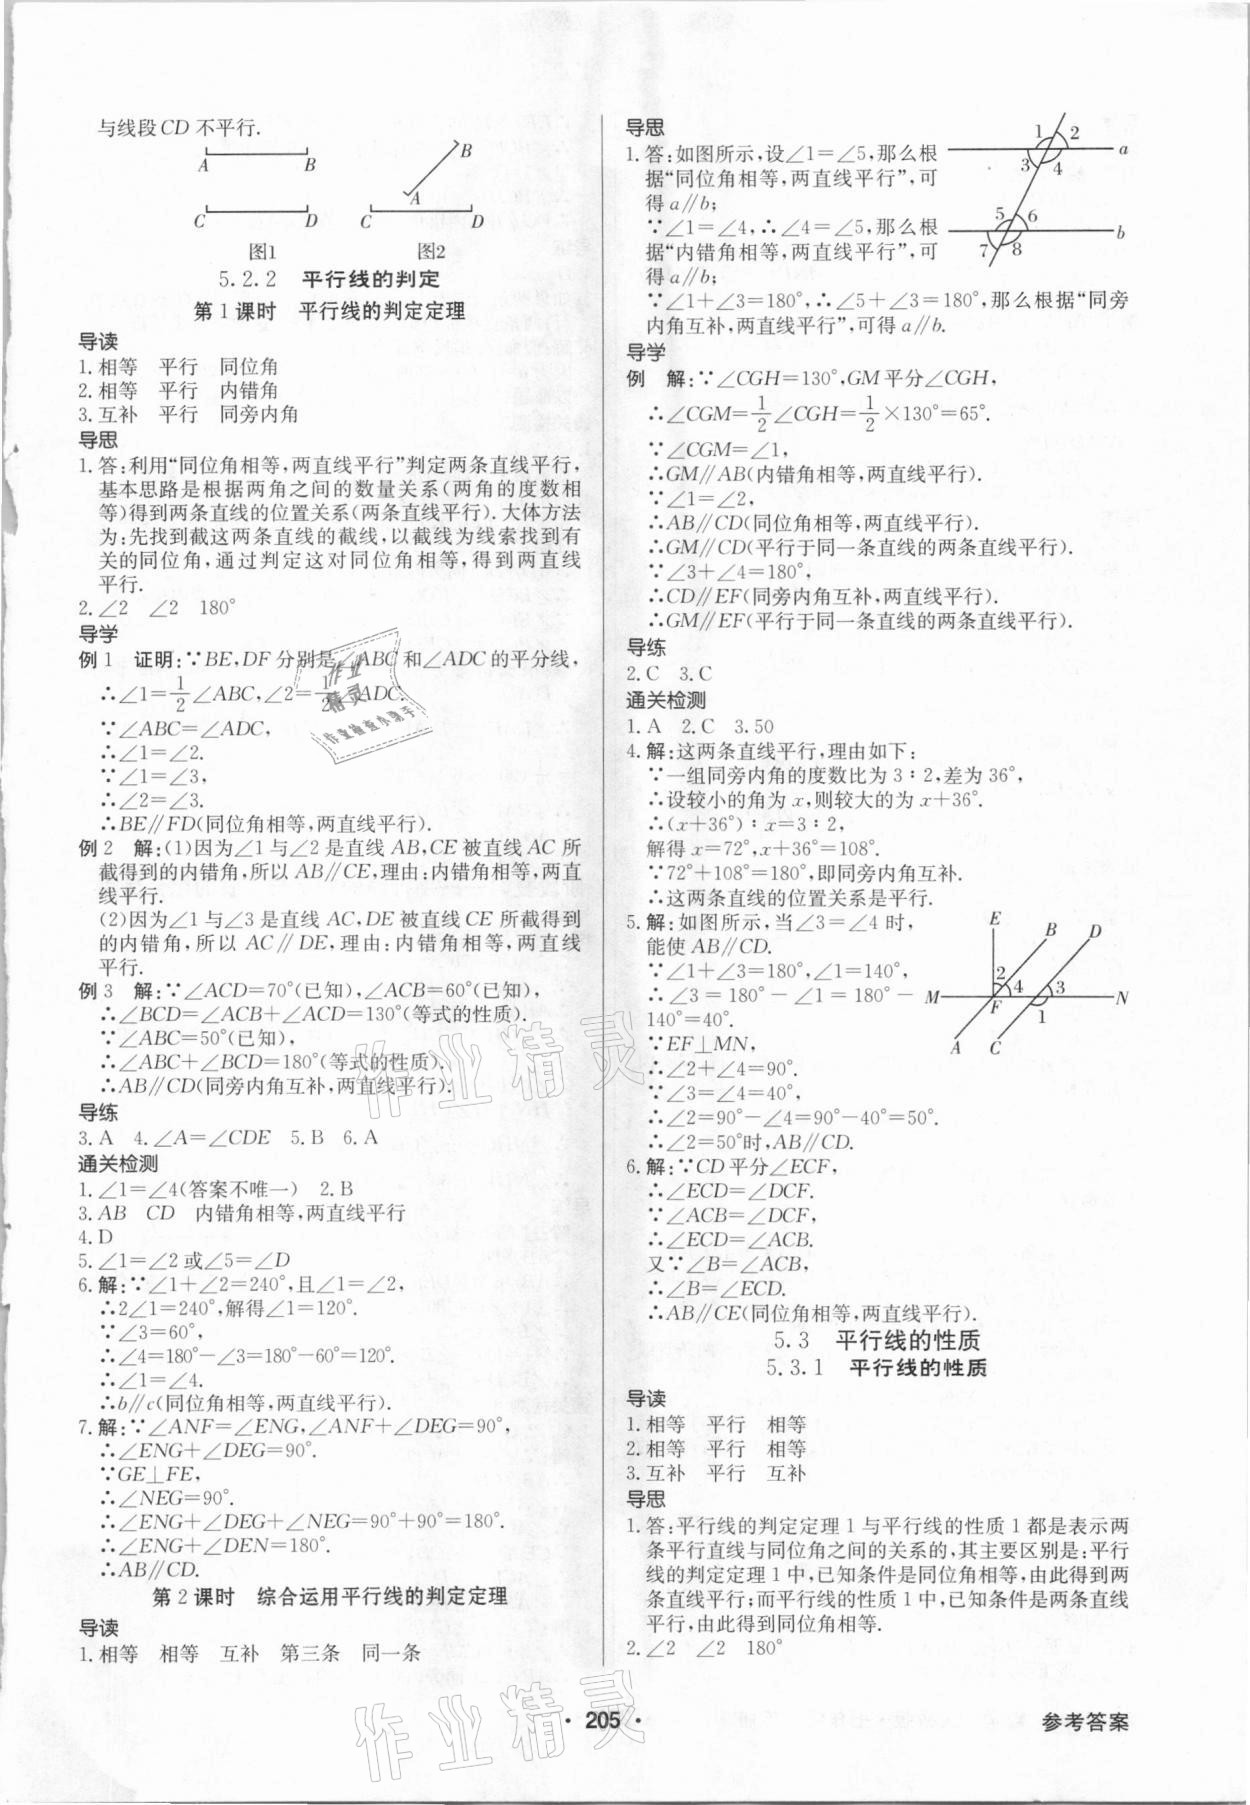 与线段CD不平行.
A B
C D
图1
B
A
C D
图2
5.2.2 平行线的判定
第1课时 平行线的判定定理
导读
1.相等 平行 同位角
2.相等 平行 内错角
3.互补 平行 同旁内角
导思
1.答:利用“同位角相等,两直线平行”判定两条直线平行,
基本思路是根据两角之间的数量关系(两角的度数相
等)得到两条直线的位置关系(两条直线平行).大体方法
为:先找到截这两条直线的截线,以截线为线索找到有
关的同位角,通过判定这对同位角相等,得到两直线
平行.
2.∠2 ∠2 180°
导学
例1 证明:∵BE,DF分别是∠ABC和∠ADC的平分线,
∴∠1=1/2∠ABC,∠2=1/2∠ADC.
∵∠ABC=∠ADC,
∴∠1=∠2.
∵∠1=∠3,
∴∠2=∠3.
∴BE∥FD(同位角相等,两直线平行).
例2 解:(1)因为∠1与∠2是直线AB,CE被直线AC所
截得到的内错角,所以AB∥CE,理由:内错角相等,两直
线平行.
(2)因为∠1与∠3是直线AC,DE被直线CE所截得到
的内错角,所以AC∥DE,理由:内错角相等,两直线
平行.
例3 解:∵∠ACD=70°(已知),∠ACB=60°(已知),
∴∠BCD=∠ACB+∠ACD=130°(等式的性质).
∵∠ABC=50°(已知),
∴∠ABC+∠BCD=180°(等式的性质).
∴AB∥CD(同旁内角互补,两直线平行).
导练
3.A 4.∠A=∠CDE 5.B 6.A
通关检测
1.∠1=∠4(答案不唯一) 2.B
3.AB CD 内错角相等,两直线平行
4.D
5.∠1=∠2或∠5=∠D
6.解:∵∠1+∠2=240°,且∠1=∠2,
∴2∠1=240°,解得∠1=120°.
∵∠3=60°,
∴∠4=180°-∠3=180°-60°=120°.
∴∠1=∠4.
∴b∥c(同位角相等,两直线平行).
7.解:∵∠ANF=∠ENG,∠ANF+∠DEG=90°,
∴∠ENG+∠DEG=90°.
∵GE⊥FE,
∴∠NEG=90°.
∴∠ENG+∠DEG+∠NEG=90°+90°=180°.
∴∠ENG+∠DEN=180°.
∴AB∥CD.
第2课时 综合运用平行线的判定定理
导读
1.相等 相等 互补 第三条 同一条
导思
1.答:如图所示,设∠1=∠5,那么根
据“同位角相等,两直线平行”,可
得a∥b;
∵∠1=∠4,∴∠4=∠5,那么根
据“内错角相等,两直线平行”,可
得a∥b;
∵∠1+∠3=180°,∴∠5+∠3=180°,那么根据“同旁
内角互补,两直线平行”,可得a∥b.
1 2
3 4
a
5 6
7 8
b
导学
例 解:∵∠CGH=130°,GM平分∠CGH,
∴∠CGM=1/2∠CGH=1/2×130°=65°.
∵∠CGM=∠1,
∴GM∥AB(内错角相等,两直线平行).
∵∠1=∠2,
∴AB∥CD(同位角相等,两直线平行).
∴GM∥CD(平行于同一条直线的两条直线平行).
∵∠3+∠4=180°,
∴CD∥EF(同旁内角互补,两直线平行).
∴GM∥EF(平行于同一条直线的两条直线平行).
导练
2.C 3.C
通关检测
1.A 2.C 3.50
4.解:这两条直线平行,理由如下:
∵一组同旁内角的度数比为3∶2,差为36°,
∴设较小的角为x,则较大的为x+36°.
∴(x+36°)∶x=3∶2,
解得x=72°,x+36°=108°.
∵72°+108°=180°,即同旁内角互补.
∴这两条直线的位置关系是平行.
5.解:如图所示,当∠3=∠4时,
能使AB∥CD.
∵∠1+∠3=180°,∠1=140°,
∴∠3=180°-∠1=180°-
140°=40°.
∵EF⊥MN,
∴∠2+∠4=90°.
∵∠3=∠4=40°,
∴∠2=90°-∠4=90°-40°=50°.
∴∠2=50°时,AB∥CD.
E B D
2 4 3
M F 1 N
A C
6.解:∵CD平分∠ECF,
∴∠ECD=∠DCF.
∵∠ACB=∠DCF,
∴∠ECD=∠ACB.
又∵∠B=∠ACB,
∴∠B=∠ECD.
∴AB∥CE(同位角相等,两直线平行).
5.3 平行线的性质
5.3.1 平行线的性质
导读
1.相等 平行 相等
2.相等 平行 相等
3.互补 平行 互补
导思
1.答:平行线的判定定理1与平行线的性质1都是表示两
条平行直线与同位角之间的关系的,其主要区别是:平行
线的判定定理1中,已知条件是同位角相等,由此得到两
直线平行;而平行线的性质1中,已知条件是两条直线
平行,由此得到同位角相等.
2.∠2 ∠2 180°
作业精灵
作业检查小助手
作业精灵
作业精灵
·205·
参考答案